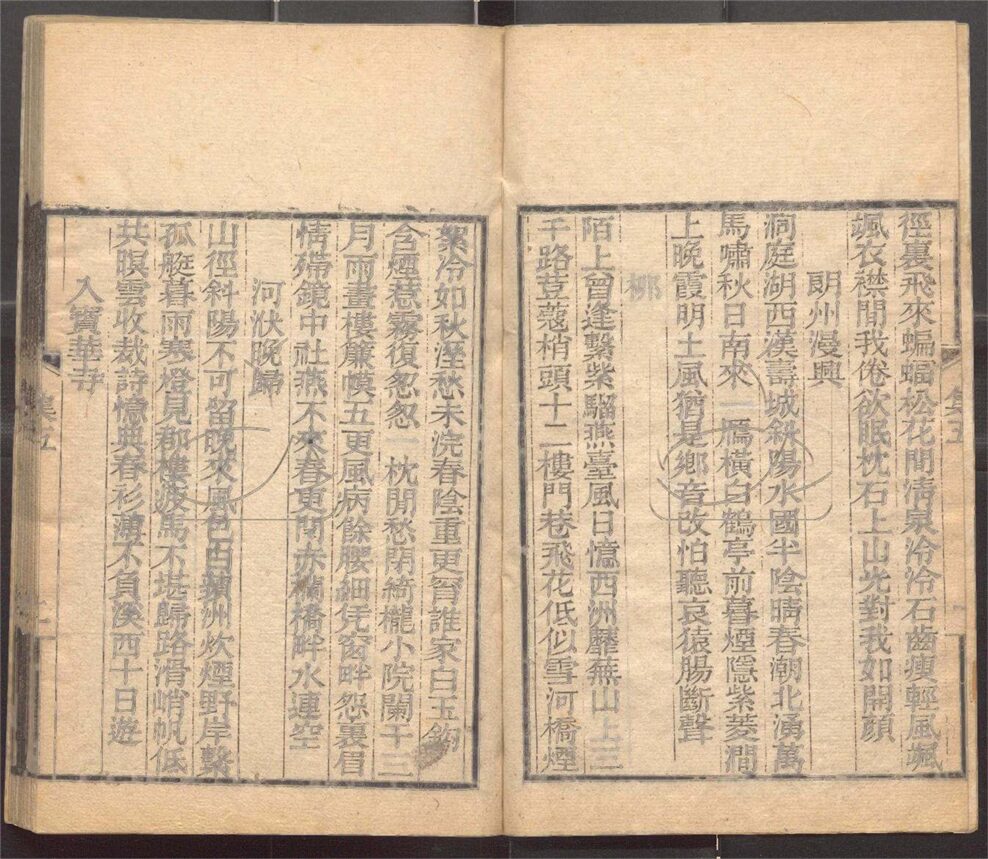 徑裏飛來蝙蝠松花間清泉泠泠石齒瘦輕風颯
颯衣襟間我倦欲眠枕石上山光對我如開顏
朗州漫興
洞庭湖西漢壽城斜陽水國半陰晴春潮北湧萬
馬嘯秋日南來一鴈橫白鶴亭前暮煙隱紫菱澗
上晚霞明土風猶是鄉音改怕聽哀猿腸斷聲
柳
陌上曾逢繫紫騮燕臺風日憶西洲蘼蕪山上三
千路荳蔻梢頭十二樓門巷飛花低似雪河橋煙
絮冷如秋溼愁未浣春陰重更窅誰家白玉鉤
含煙惹霧復怱怱一枕閒愁閉綺櫳小院闌干三
月雨畫樓簾幙五更風病餘腰細凭窗畔怨裏眉
情殢鏡中社燕不來春更閙赤欄橋畔水連空
河洑晚歸
山徑斜陽不可留晚來風色白蘋洲炊煙野岸繫
孤艇暮雨寒燈見郡樓波馬不堪歸路滑峭帆低
共暝雲收裁詩憶與春衫薄不負溪西十日遊
入寶華寺
集五